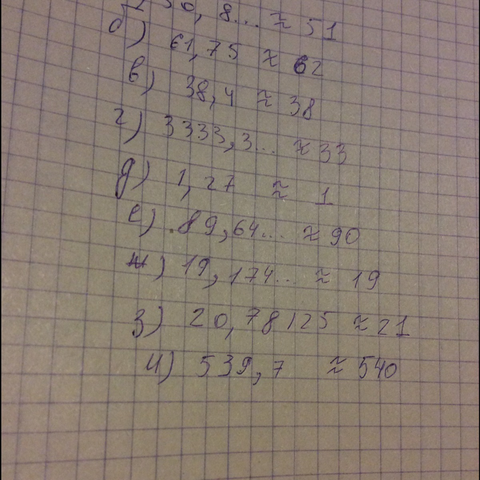 50, 8... ≈ 51
б) 61,75 ≈ 62
в) 38,4 ≈ 38
г) 3333,3... ≈ 33
д) 1,27 ≈ 1
е) 89,64... ≈ 90
ж) 19,174.. ≈ 19
з) 20,78125 ≈ 21
и) 539,7 ≈ 540